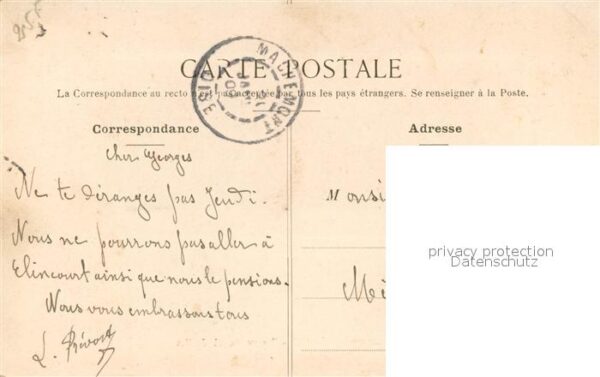 CARTE POSTALE
MACHEMONT
OISE
La Correspondance au recto n'est pas acceptée par tous les pays étrangers. Se renseigner à la Poste.
Correspondance
Adresse
Cher Georges
Ne te déranges pas Jeudi.
Nous ne pourrons pas aller à
Elincourt ainsi que nous le pensions.
Nous vous embrassons tous
L. Prévost
Monsi
Mé
privacy protection
Datenschutz